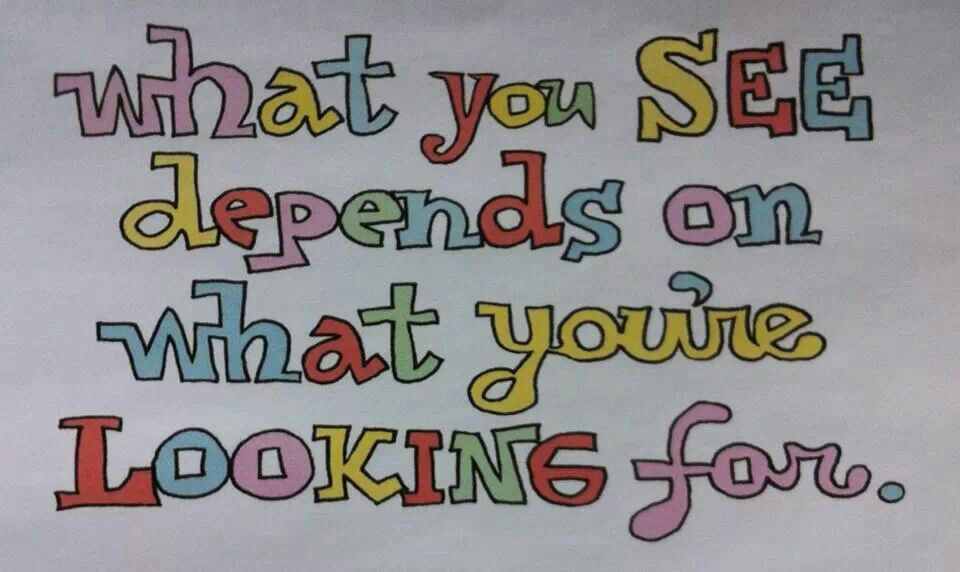 what you SEE
depends on
what you're
LOOKING for.